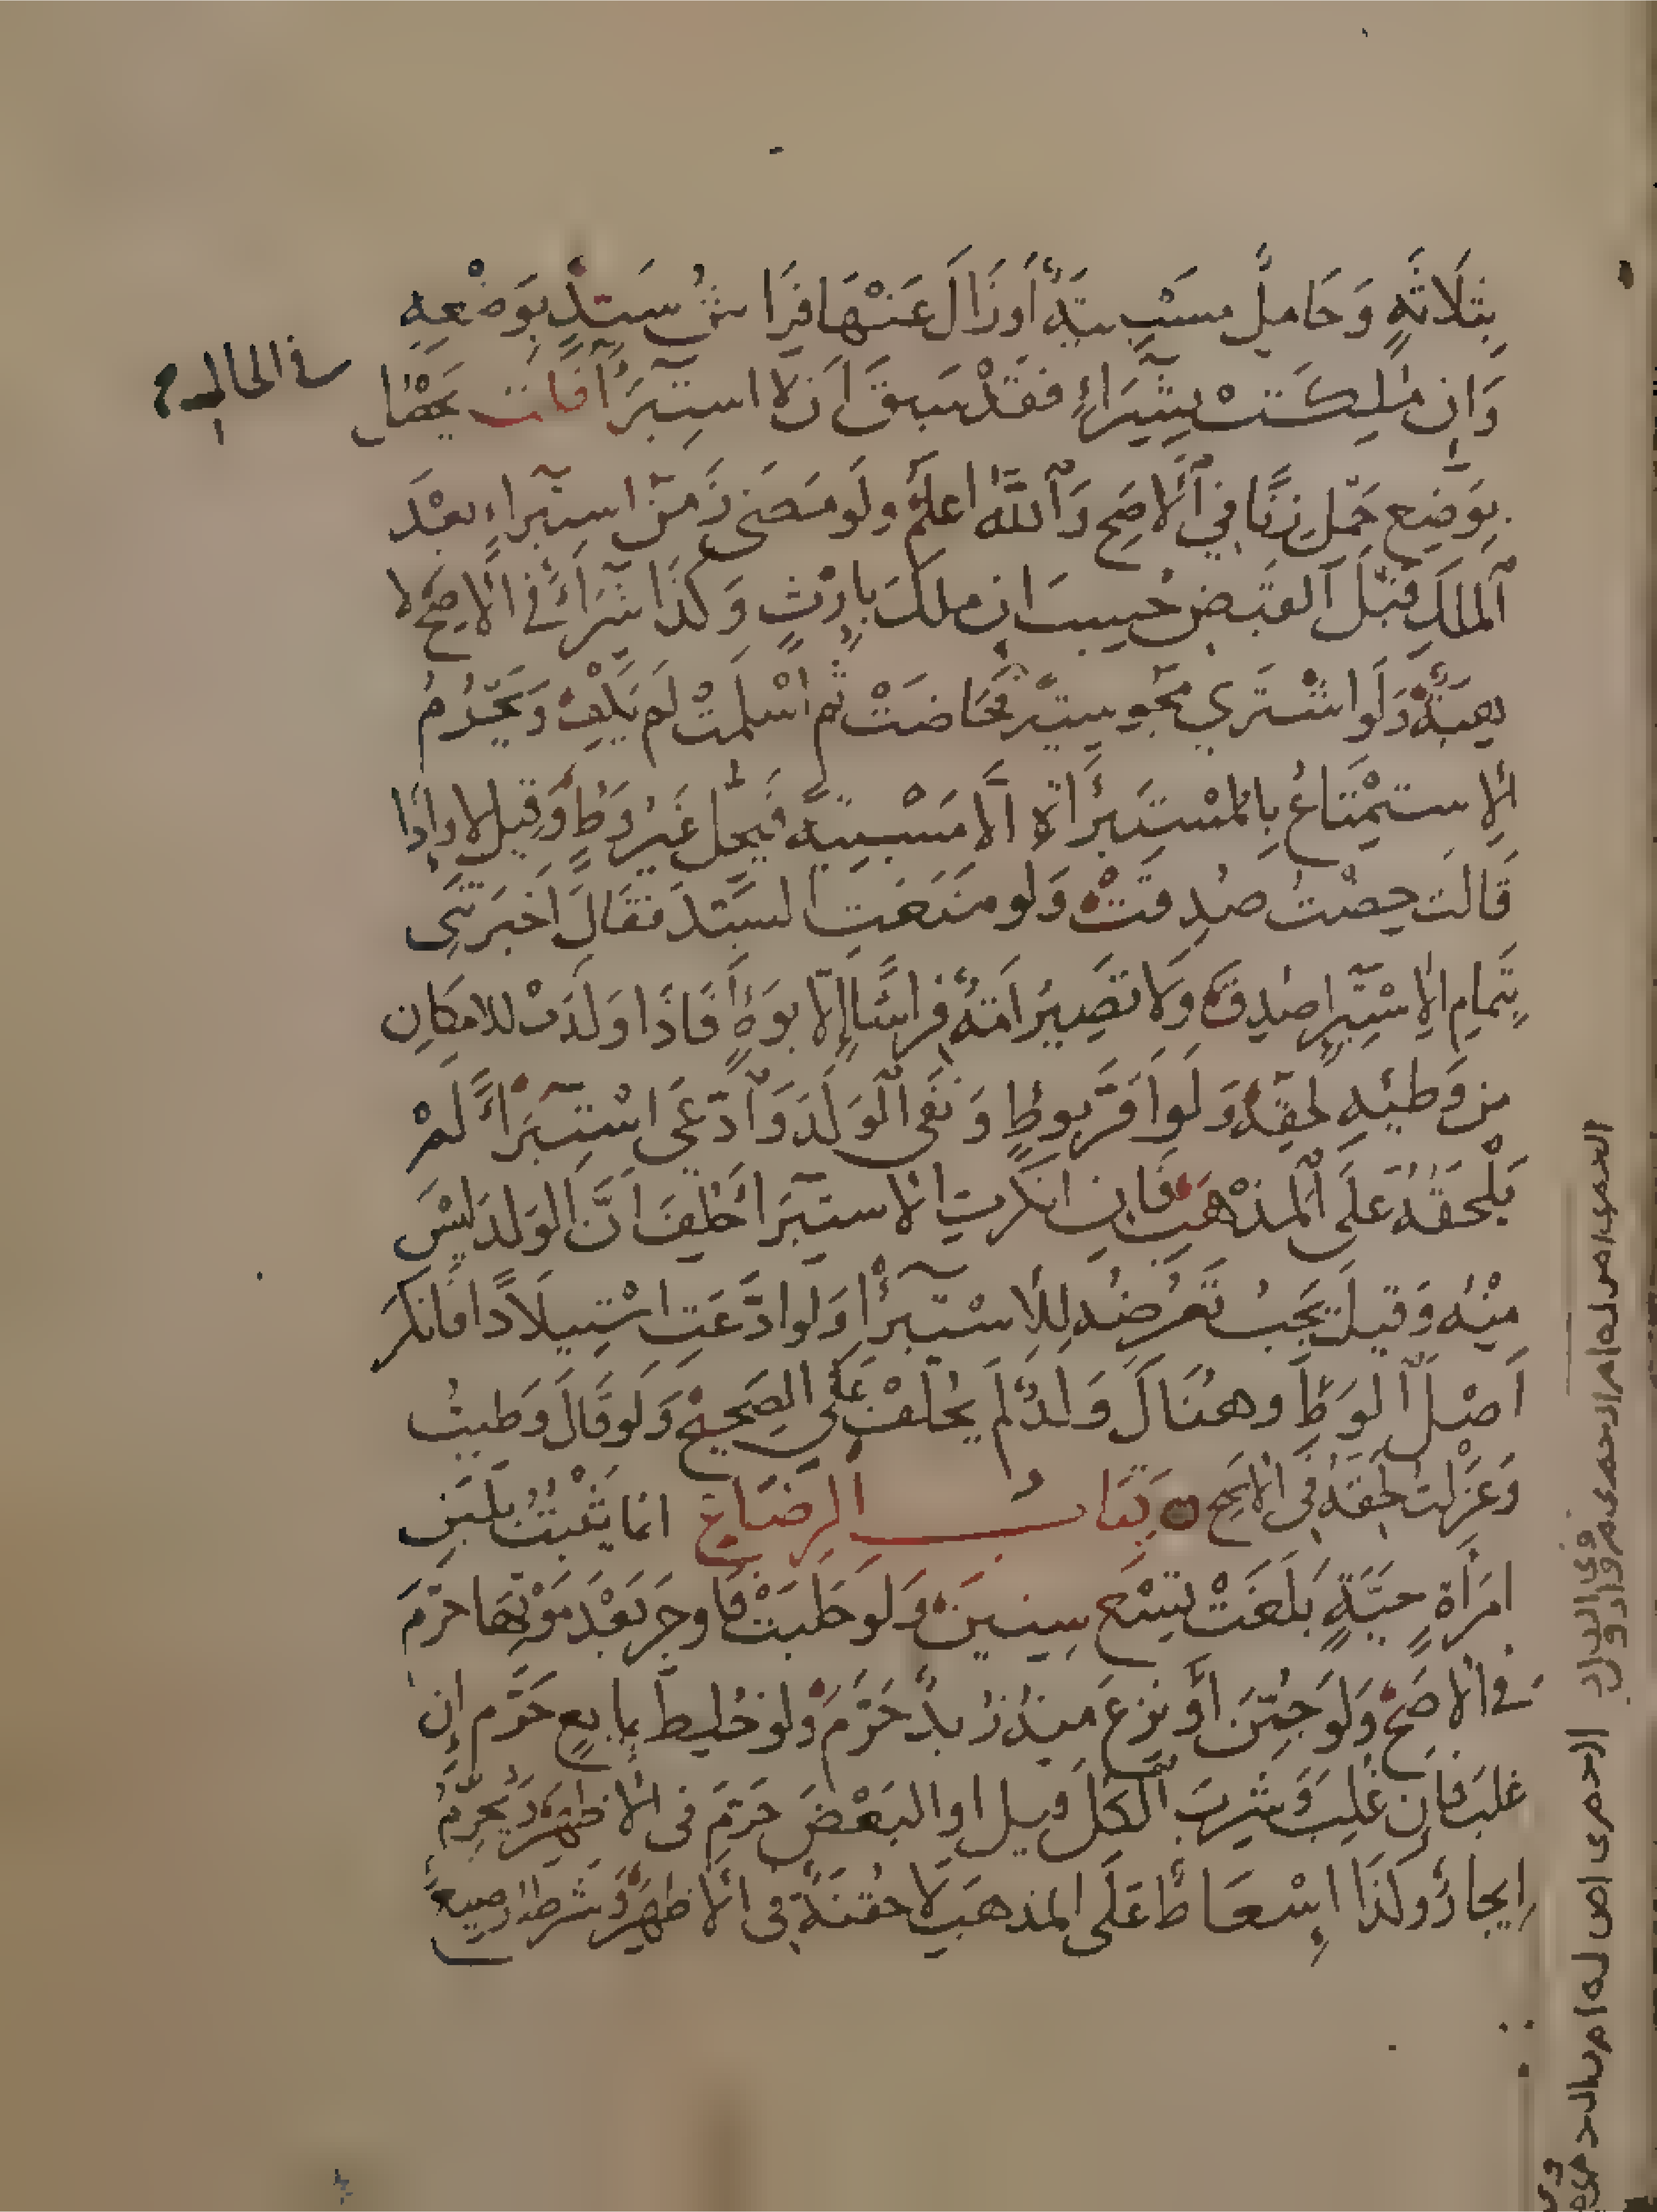 بِثَلَاثَةٍ وَحَامِلٌ مَسْبِيَّةٌ أَوْ زَالَ عَنْهَا فِرَاشُ سَيِّدٍ بِوَضْعِهِ
وَإِنْ مُلِكَتْ بِشِرَاءٍ فَقَدْ سَبَقَ أَنْ لَا اسْتِبْرَاءَ قلت يَحْصُل
في الحال
بِوَضْعِ حَمْلِ زِنًا فِي الْأَصَحِّ وَاللَّهُ اعلم وَلَو مَضَى زَمَنُ اسْتِبْرَاءٍ بَعْدَ
الْمِلْكِ قَبْلَ الْقَبْضِ حُسِبَ ان ملك بإرْثٍ وَكَذَا شِرَاءٌ في الأصَحِّ لا
هِبَةٌ وَلَو اشْتَرَي مَجُوسِيَّةً فَحَاضَتْ ثم اسْلَمَتْ لَم يَكْفِ وَيَحْرُمُ
الاستِمْتَاعُ بِالْمُسْتَبْرَأَةِ الا مَسْبِيَّةً فَيَحِلُّ غَيْرُ وَطءٍ وَقِيلَ لا وإذَا
قَالَت حِضْتُ صُدِقَتْ وَلو مَنَعَتِ السَّيِّدَ فَقَالَ اخْبَرَتْنِى
بِتَمامِ الاسْتِبْرَاء صُدِقَ وَلَا تَصِيرُ امَةٌ فِرَاشًا إلَّا بوَطءٍ فَاذَا وَلَدَتْ للامكَانِ
من وَطئِهِ لحقَهُ وَلَو اقَرَّ بوطءٍ وَنَفَى الْوَلَدَ وَادَّعَى اسْتِبْرَاءً لمْ
يَلْحَقْهُ عَلَى الْمَذْهَبِ فَان انكرت الاستبْرَاءَ حُلِّفَ انَّ الولدَ لَيْسَ
مِنْهُ وَقيلَ يَجِبُ تَعَرُّضُهُ لِلاسْتبرَاءِ وَلو ادَّعَتِ اسْتِيلَادًا فَانكَرَ
أَصْلَ الوَطءِ وهُنَاكَ وَلَدٌ لم يُحَلَّفْ عَلَى الصَحِيحْ وَلَو قَالَ وَطيتُ
وَعَزَلتُ لَحِقَهُ فِى الاصَحِّ كِتَابُ الرضَاعِ انما يَثْبُتُ بِلَبَنِ
امرَأةٍ حَيَّةٍ بَلَغَتْ تِسْعَ سِنينَ وَلَو حَلَبَتْ فاوجر بَعْدَ مَوْتِهَا حَرَّمَ
في الاصَحِّ وَلَو جُبِّنَ أَو نُزِعَ منهُ زُبدٌ حَرَّمَ وَلو خُلِيطَ بِمايعٍ حَرَّم إن
غلبَ فَإِن غُلِبَ وَشُرِبَ الْكل قيل او البَعْضَ حَرَّمَ فى الاظهَرِ وَيُحَرِّمُ
إيجارٌ وَكَذَا إسْعَاطٌ عَلَى المذهَبِ لَا حُقْنَةٌ فى الاظهَرِ وَشَرطه رضيع